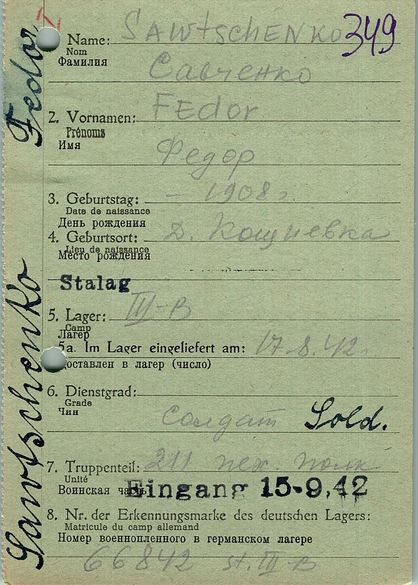 Sawtschenko Fedor
349
1. Name: SAWtSCHENKO
Nom
Фамилия
Савченко
2. Vornamen: FEdor
Prénoms
Имя
Федор
3. Geburtstag: – 1908 г.
Date de naissance
День рождения
4. Geburtsort: д. Кощиевка
Lieu de naissance
Место рождения
Stalag
5. Lager: III-B
Camp
Лагерь
5a. Im Lager eingeliefert am: 17.8.42.
Доставлен в лагер (число)
6. Dienstgrad:
Grade
Чин
Солдат Sold.
7. Truppenteil: 211 пех. полк
Unité
Воинская часть
Eingang 15-9.42
8. Nr. der Erkennungsmarke des deutschen Lagers:
Matricule du camp allemand
Номер военнопленного в германском лагере
66842 st. III-B